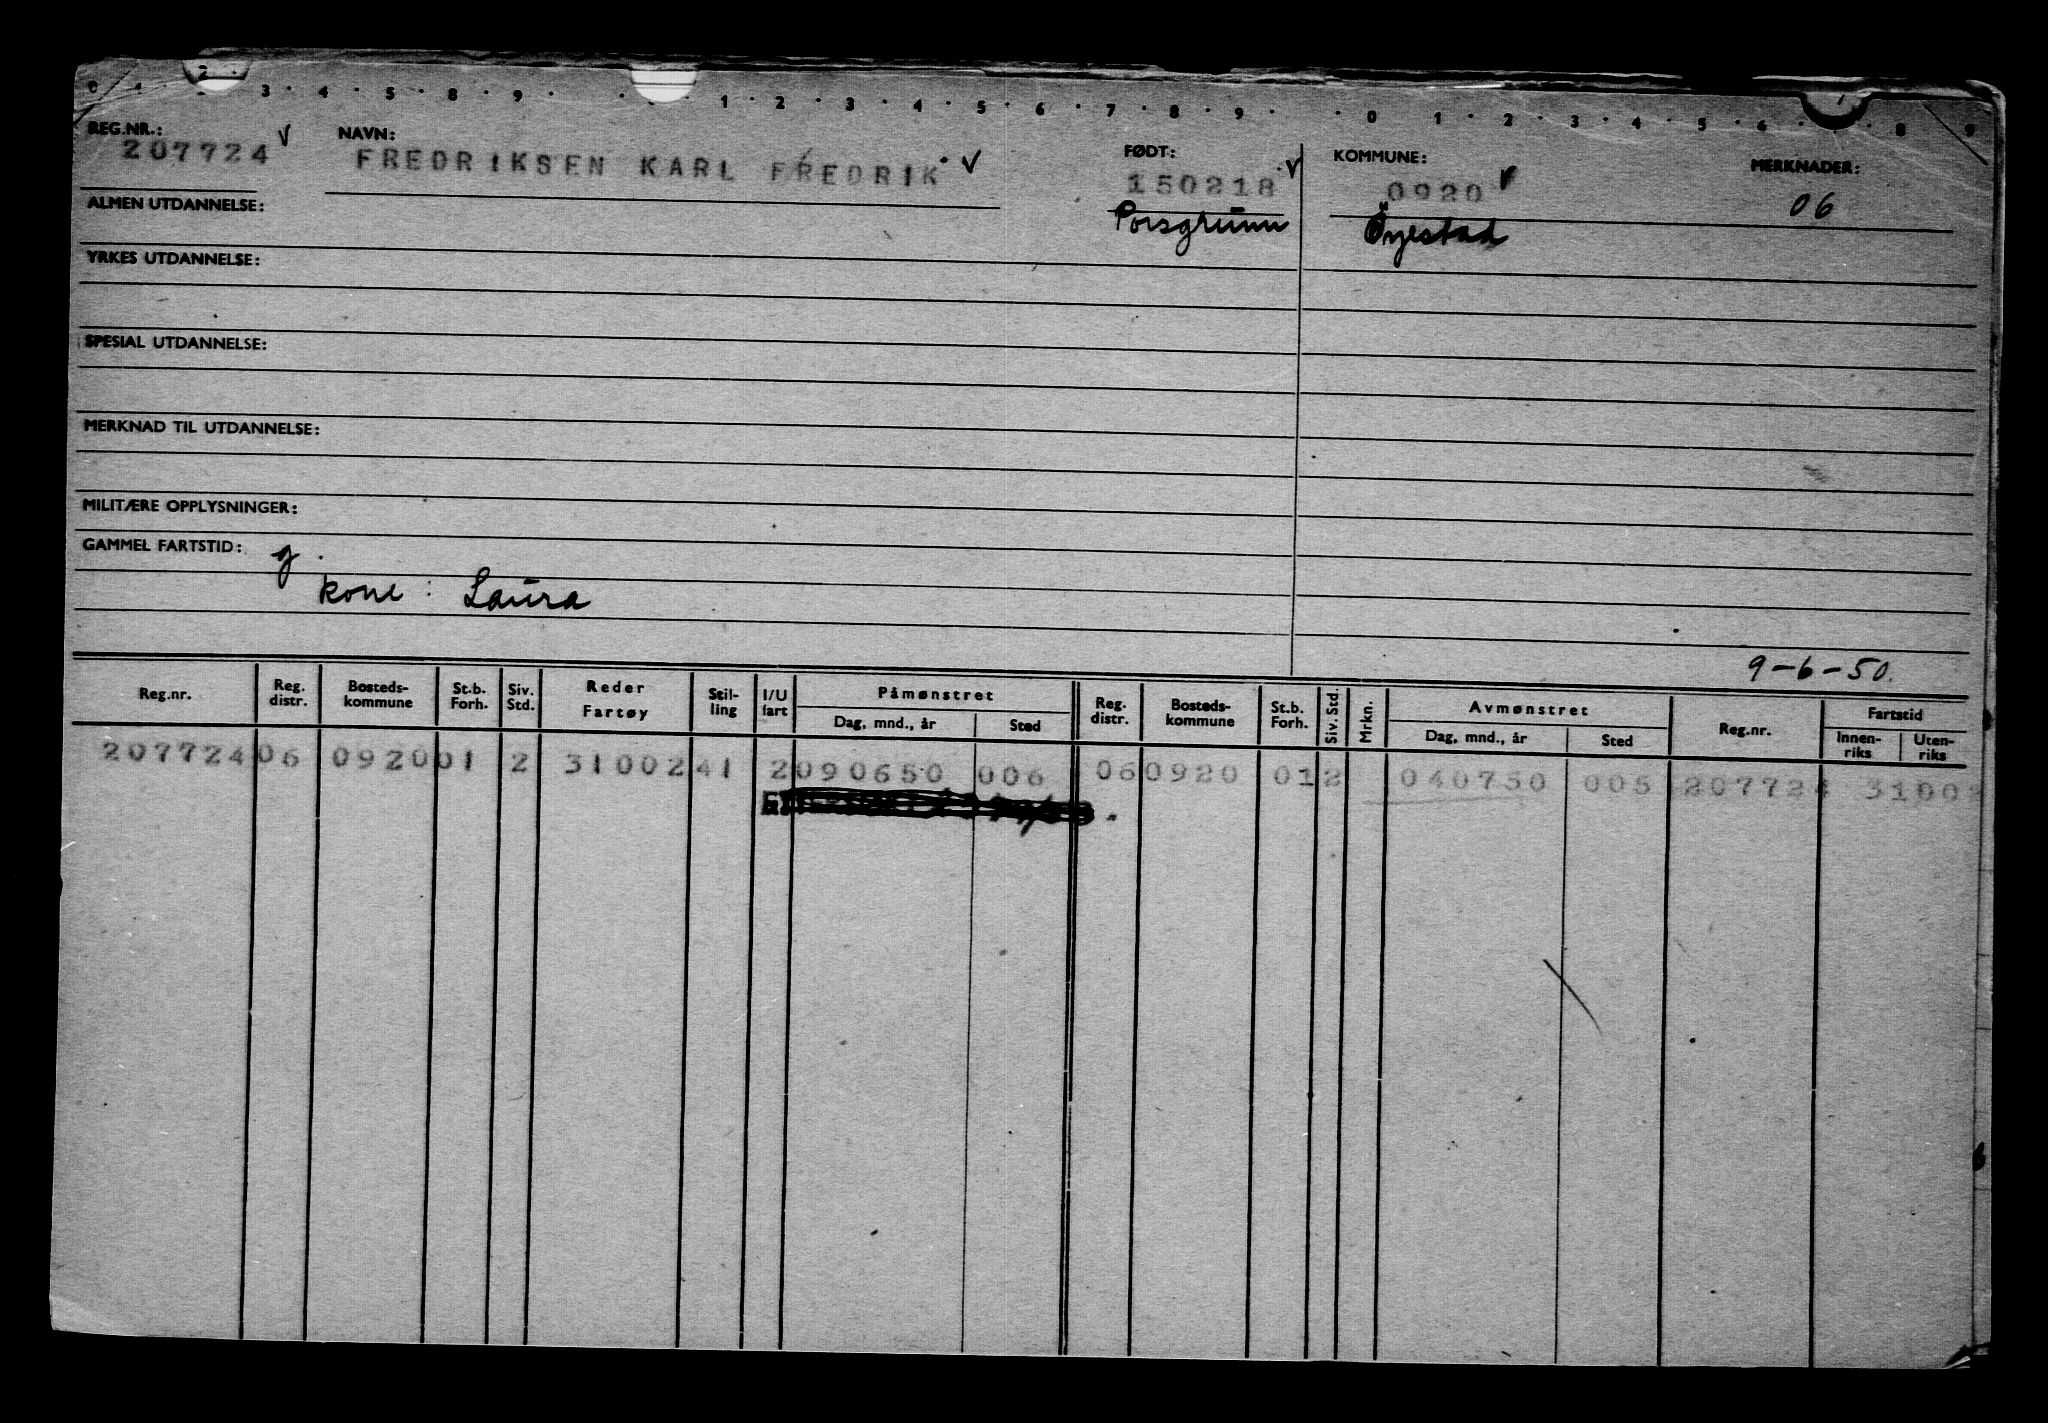 REG.NR.: NAVN: FØDT: KOMMUNE: MERKNADER:
207724 FREDRIKSEN KARL FREDRIK 150218 0920 06
Porsgrunn Öyestad
ALMEN UTDANNELSE:
YRKES UTDANNELSE:
SPESIAL UTDANNELSE:
MERKNAD TIL UTDANNELSE:
MILITÆRE OPPLYSNINGER:
GAMMEL FARTSTID: g.
kone: Laura
9-6-50.
Reg.nr. Reg. distr. Bosteds-kommune St.b. Forh. Siv. Std. Reder Fartøy Stil-ling I/U fart Påmønstret Dag, mnd., år Sted Reg. distr. Bosteds-kommune St.b. Forh. Siv. Std. Mrkn. Avmønstret Dag, mnd., år Sted Reg.nr. Fartstid Innen-riks Uten-riks
207724 06 0920 01 2 31002 41 2 090650 006 06 0920 01 2 040750 005 207724 31002